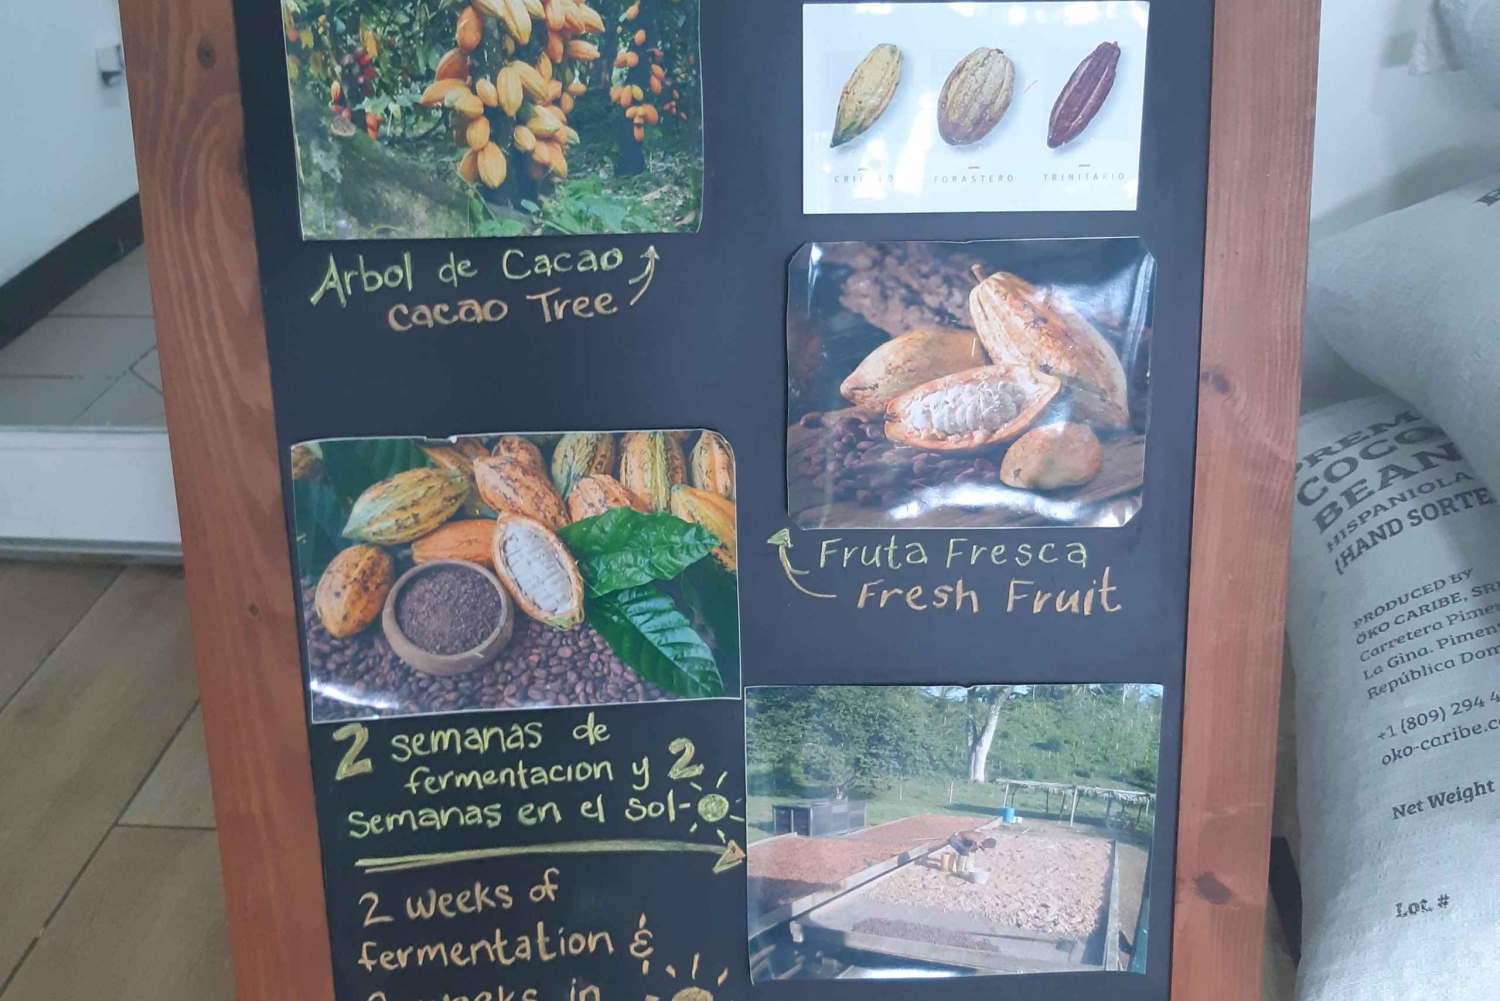 CRIOLLO FORASTERO TRINITARIO
Arbol de Cacao
Cacao Tree
Fruta Fresca
Fresh Fruit
2 semanas de
fermentacion y 2
semanas en el sol-
2 weeks of
fermentation &
weeks in
COCO
BEAN
HISPANIOLA
(HAND SORTE
PRODUCED BY
ÖKO CARIBE, SR
Carretera Pimen
La Gina. Piment
República Dom
+1 (809) 294 4
oko-caribe.co
Net Weight
Lot. #